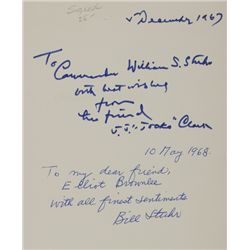 December 1967
To
Commander William S. Stuhr
with best wishes
from
his friend
J.J. "Jocko" Clark
10 May 1968.
To my dear friend,
Elliot Brownlee
with all finest sentiments
Bill Stuhr